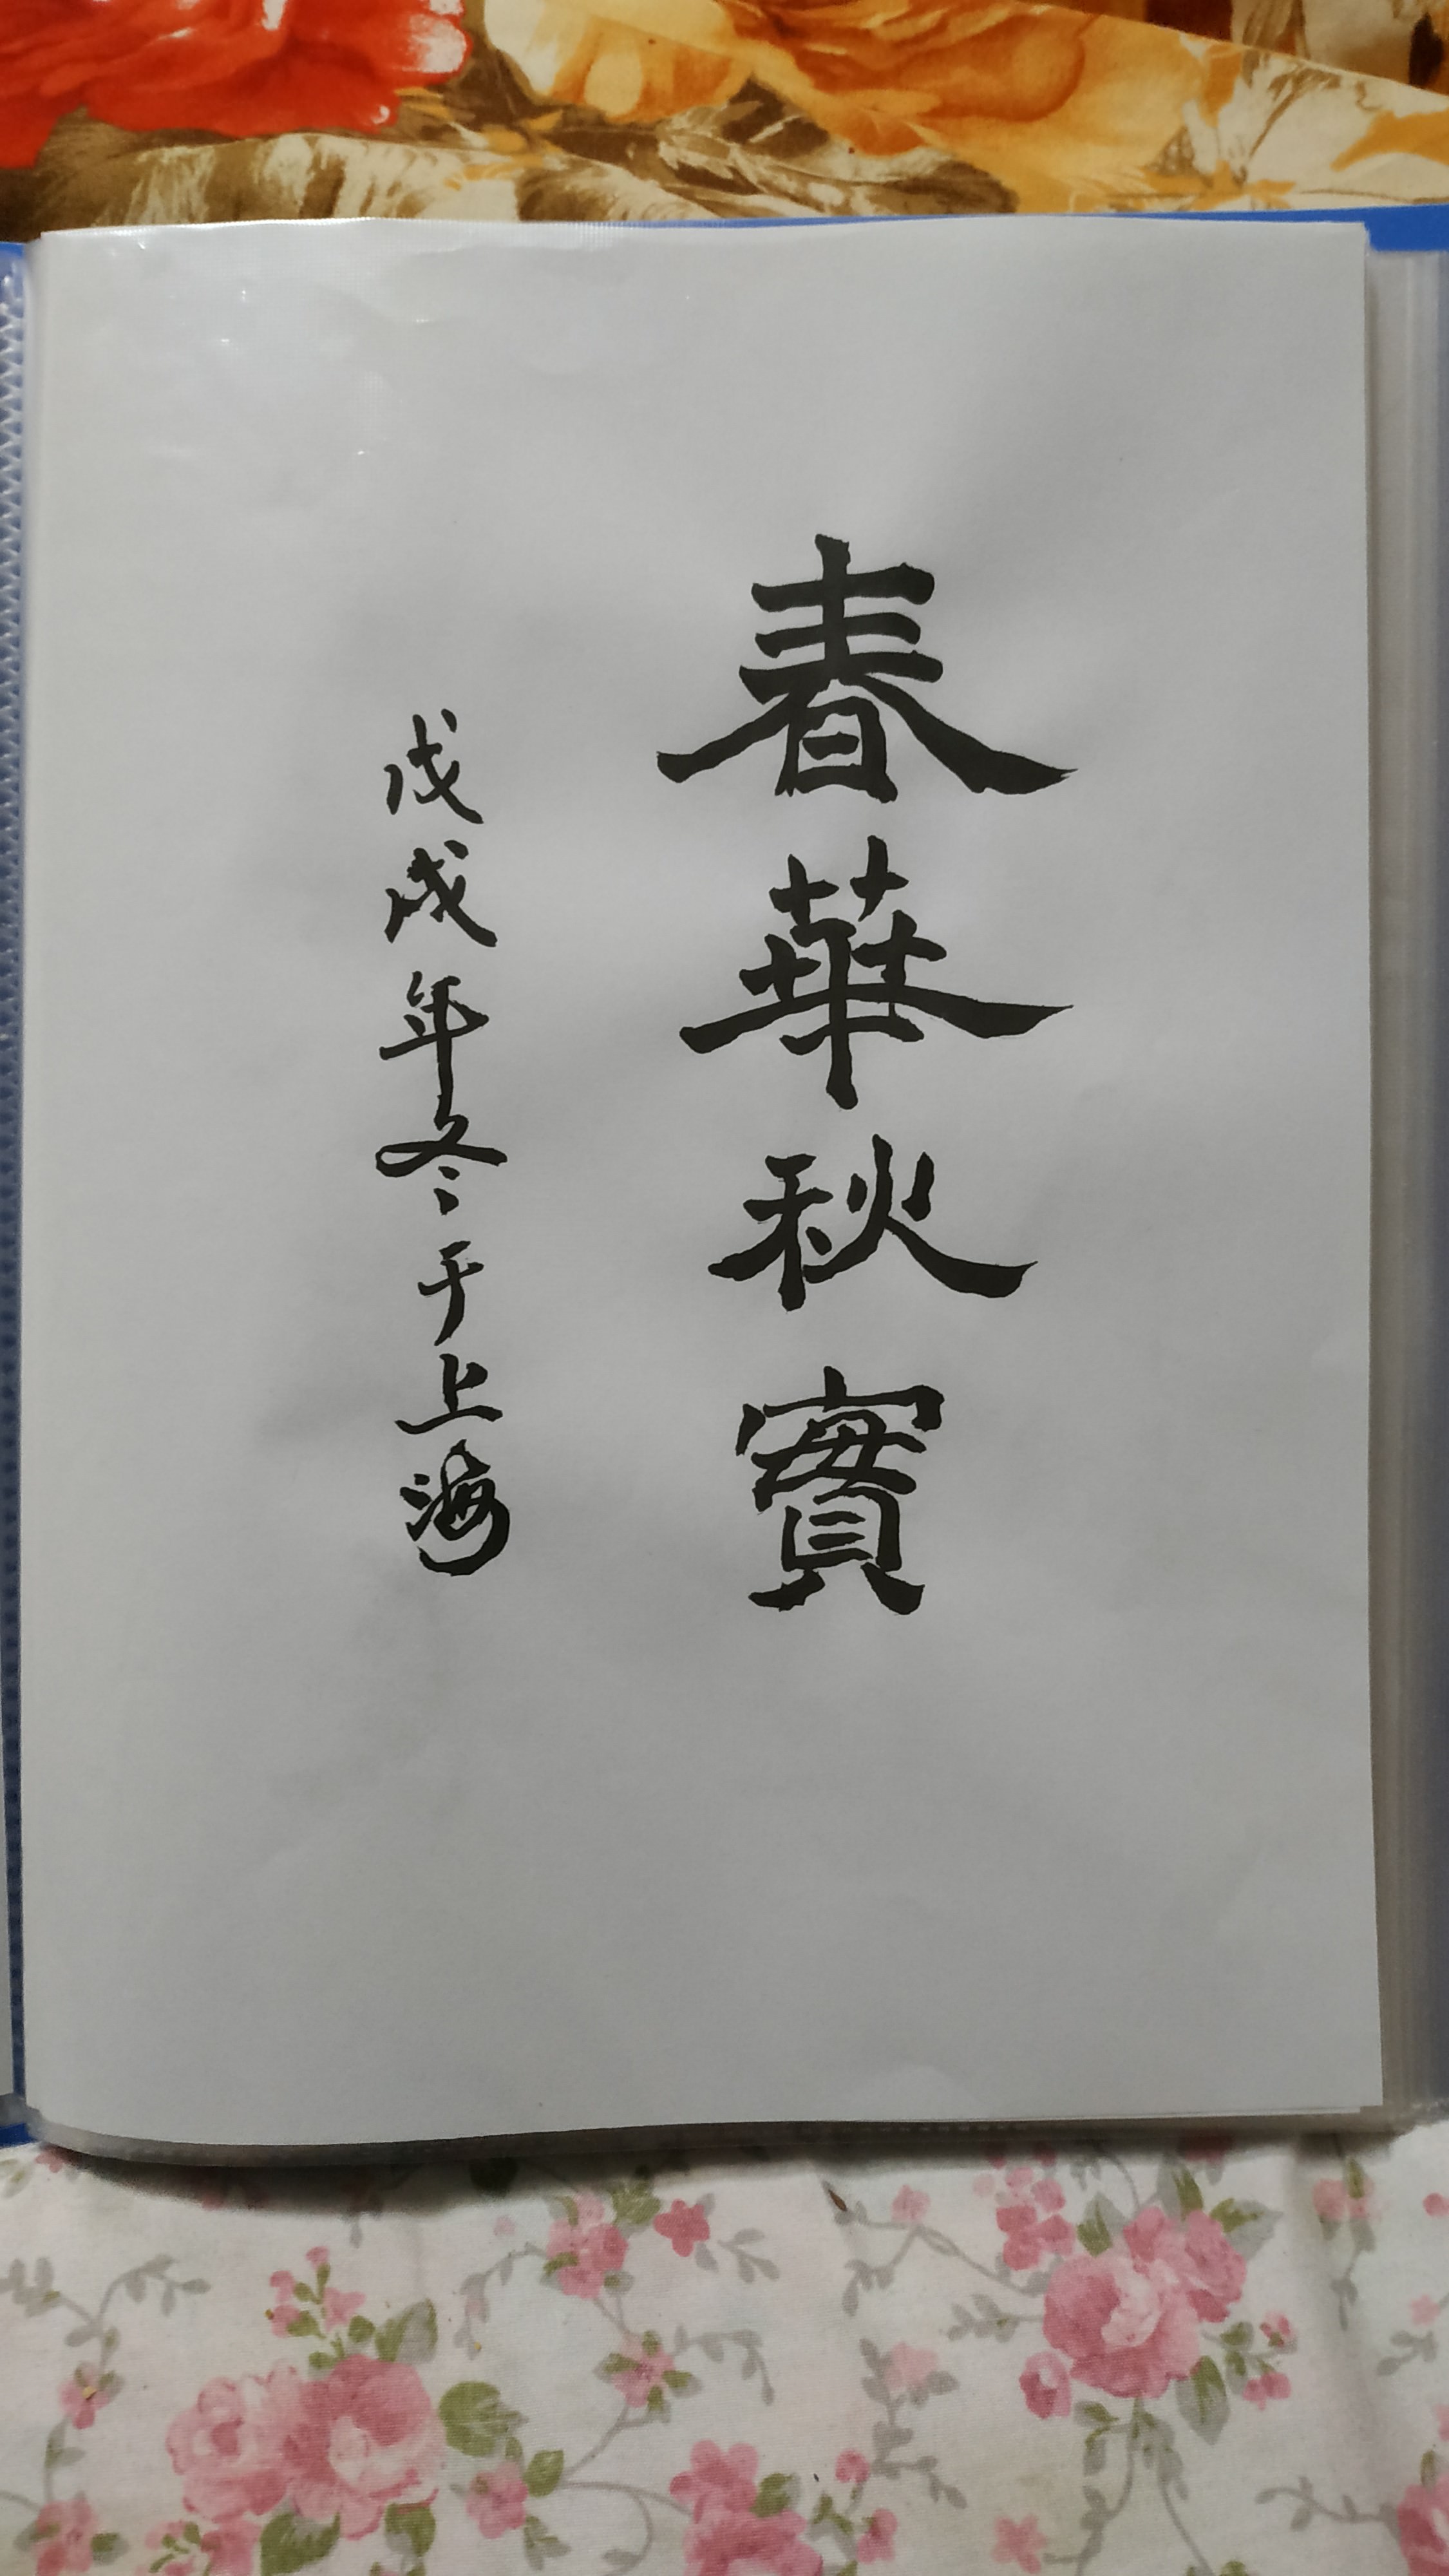 春華秋實
戊戌年冬于上海